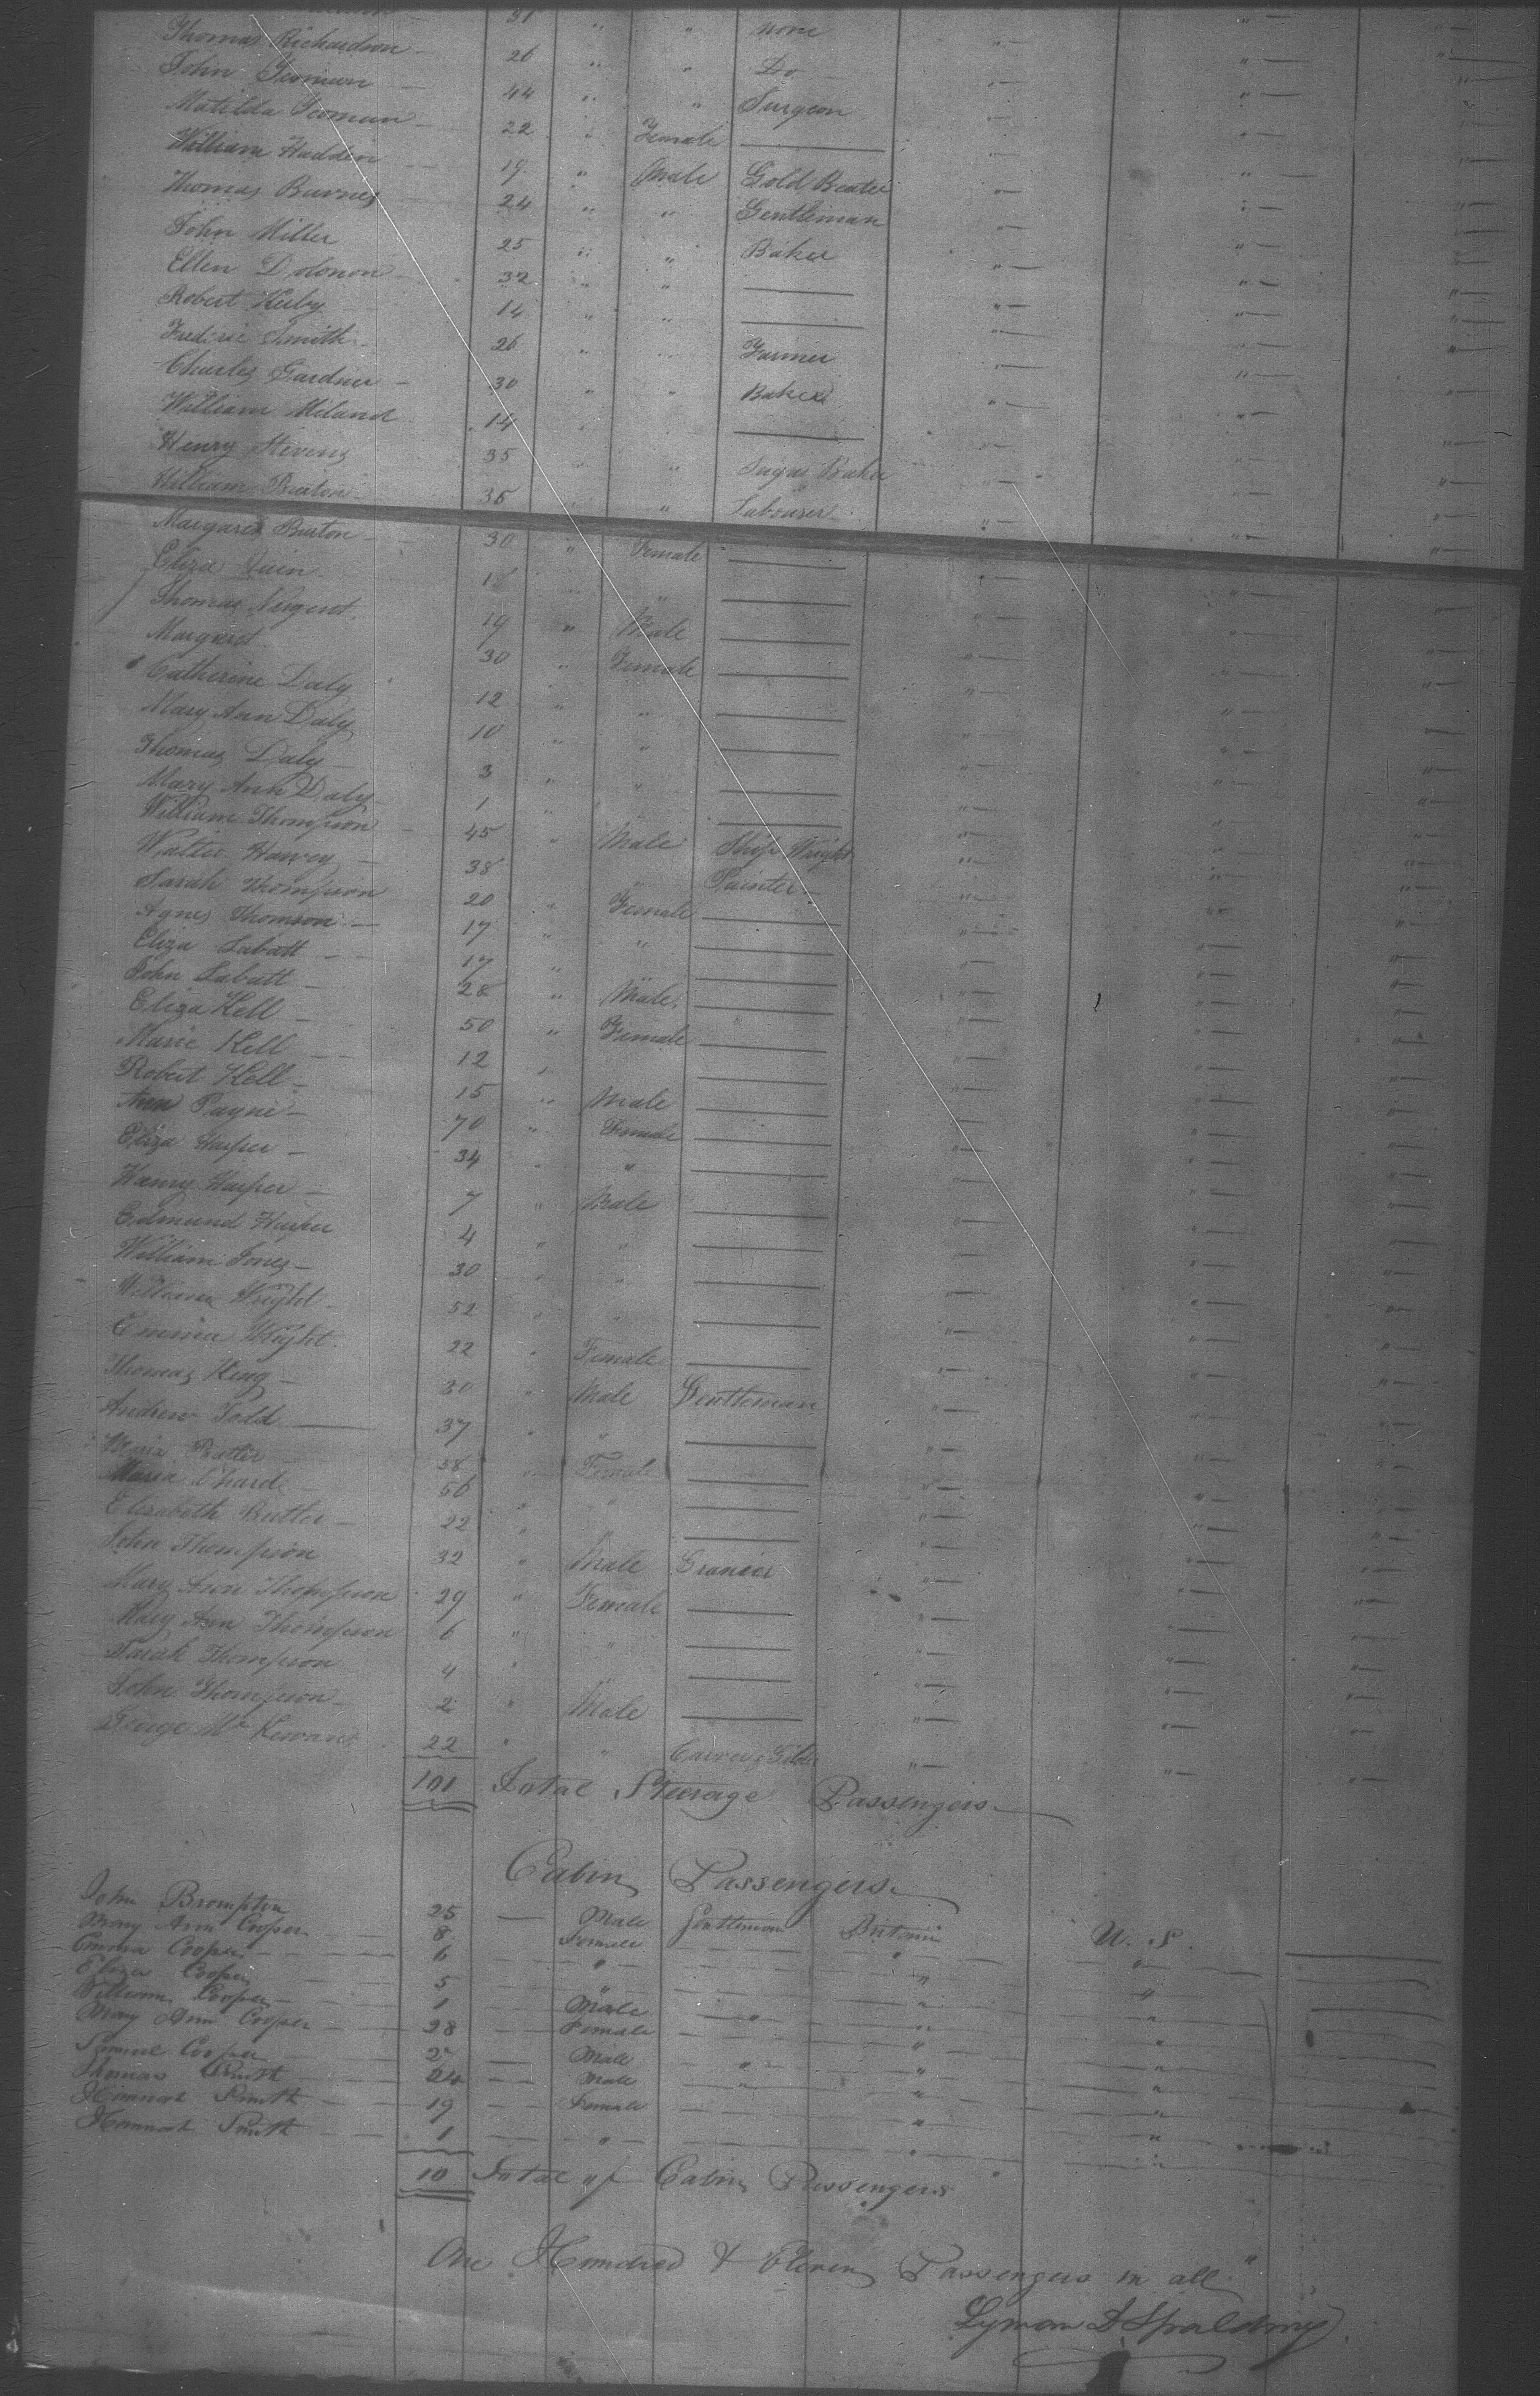 31 " " none " " "
Thomas Richardson 26 " " Do " " "
John Yeoman 44 " " Surgeon " " "
Matilda Yeoman 22 " Female " " "
William Hadden 19 " Male Gold Beater " " "
Thomas Barnes 24 " " Gentleman " " "
John Miller 25 " " Baker " " "
Ellen Dolonon 32 " " " " "
Robert Kerby 14 " " " " "
Frederic Smith 26 " " Farmer " " "
Charles Gardner 30 " " Baker " " "
William Miland 14 " " " " "
Henry Stevens 35 " " Sugar Baker " " "
William Burton 35 " " Labourer " " "
Margaret Burton 30 " Female " " "
Eliza Quin 18 " " " " "
Thomas Nugent 19 " Male " " "
Margaret 30 " Female " " "
Catherine Daly 12 " " " " "
Mary Ann Daly 10 " " " " "
Thomas Daly 3 " " " " "
Mary Ann Daly 1 " " " " "
William Thompson 45 " Male Ship Wright " " "
Walter Harvey 38 " Painter " " "
Sarah Thompson 20 " Female " " "
Agnes Thomson 17 " " " " "
Eliza Labatt 17 " " " " "
John Labatt 28 " Male " " "
Eliza Kell 50 " Female " " "
Marie Kell 12 " " " "
Robert Kell 15 " Male " " "
Ann Payne 70 " Female " " "
Eliza Harper 34 " " " " "
Henry Harper 7 " Male " " "
Edmund Harper 4 " " " " "
William Jones 30 " " " " "
William Wright 52 " " " " "
Emma Wright 22 " Female " " "
Thomas King 30 " Male Gentleman " " "
Andrew Todd 37 " " " " "
Maria Butler 38 " Female " " "
Maria 56 " " " " "
Elizabeth Butler 22 " " " "
John Thompson 32 " Male " " "
Mary Ann Thompson 29 " Female " " "
Mary Ann Thompson 6 " " " " "
Sarah Thompson 4 " " " "
John Thompson 2 " Male " " "
George Mc 22 " " Carver & Gilder " " "
101 Total Steerage Passengers
Cabin Passengers
John Brompton 25 — Male Gentleman Britain U. S.
Mary Ann Cooper 8 Female " "
Emma Cooper 6 " " "
Eliza Cooper 5 " " "
William Cooper 1 Male " " "
Mary Ann Cooper 28 Female " "
Samuel Cooper 2 Male " " "
Thomas Smith 24 Male " " "
Hannah Smith 19 Female " "
Hannah Smith 1 " " "
10 Total of Cabin Passengers
One Hundred & Eleven Passengers in all
Lyman D Spalding